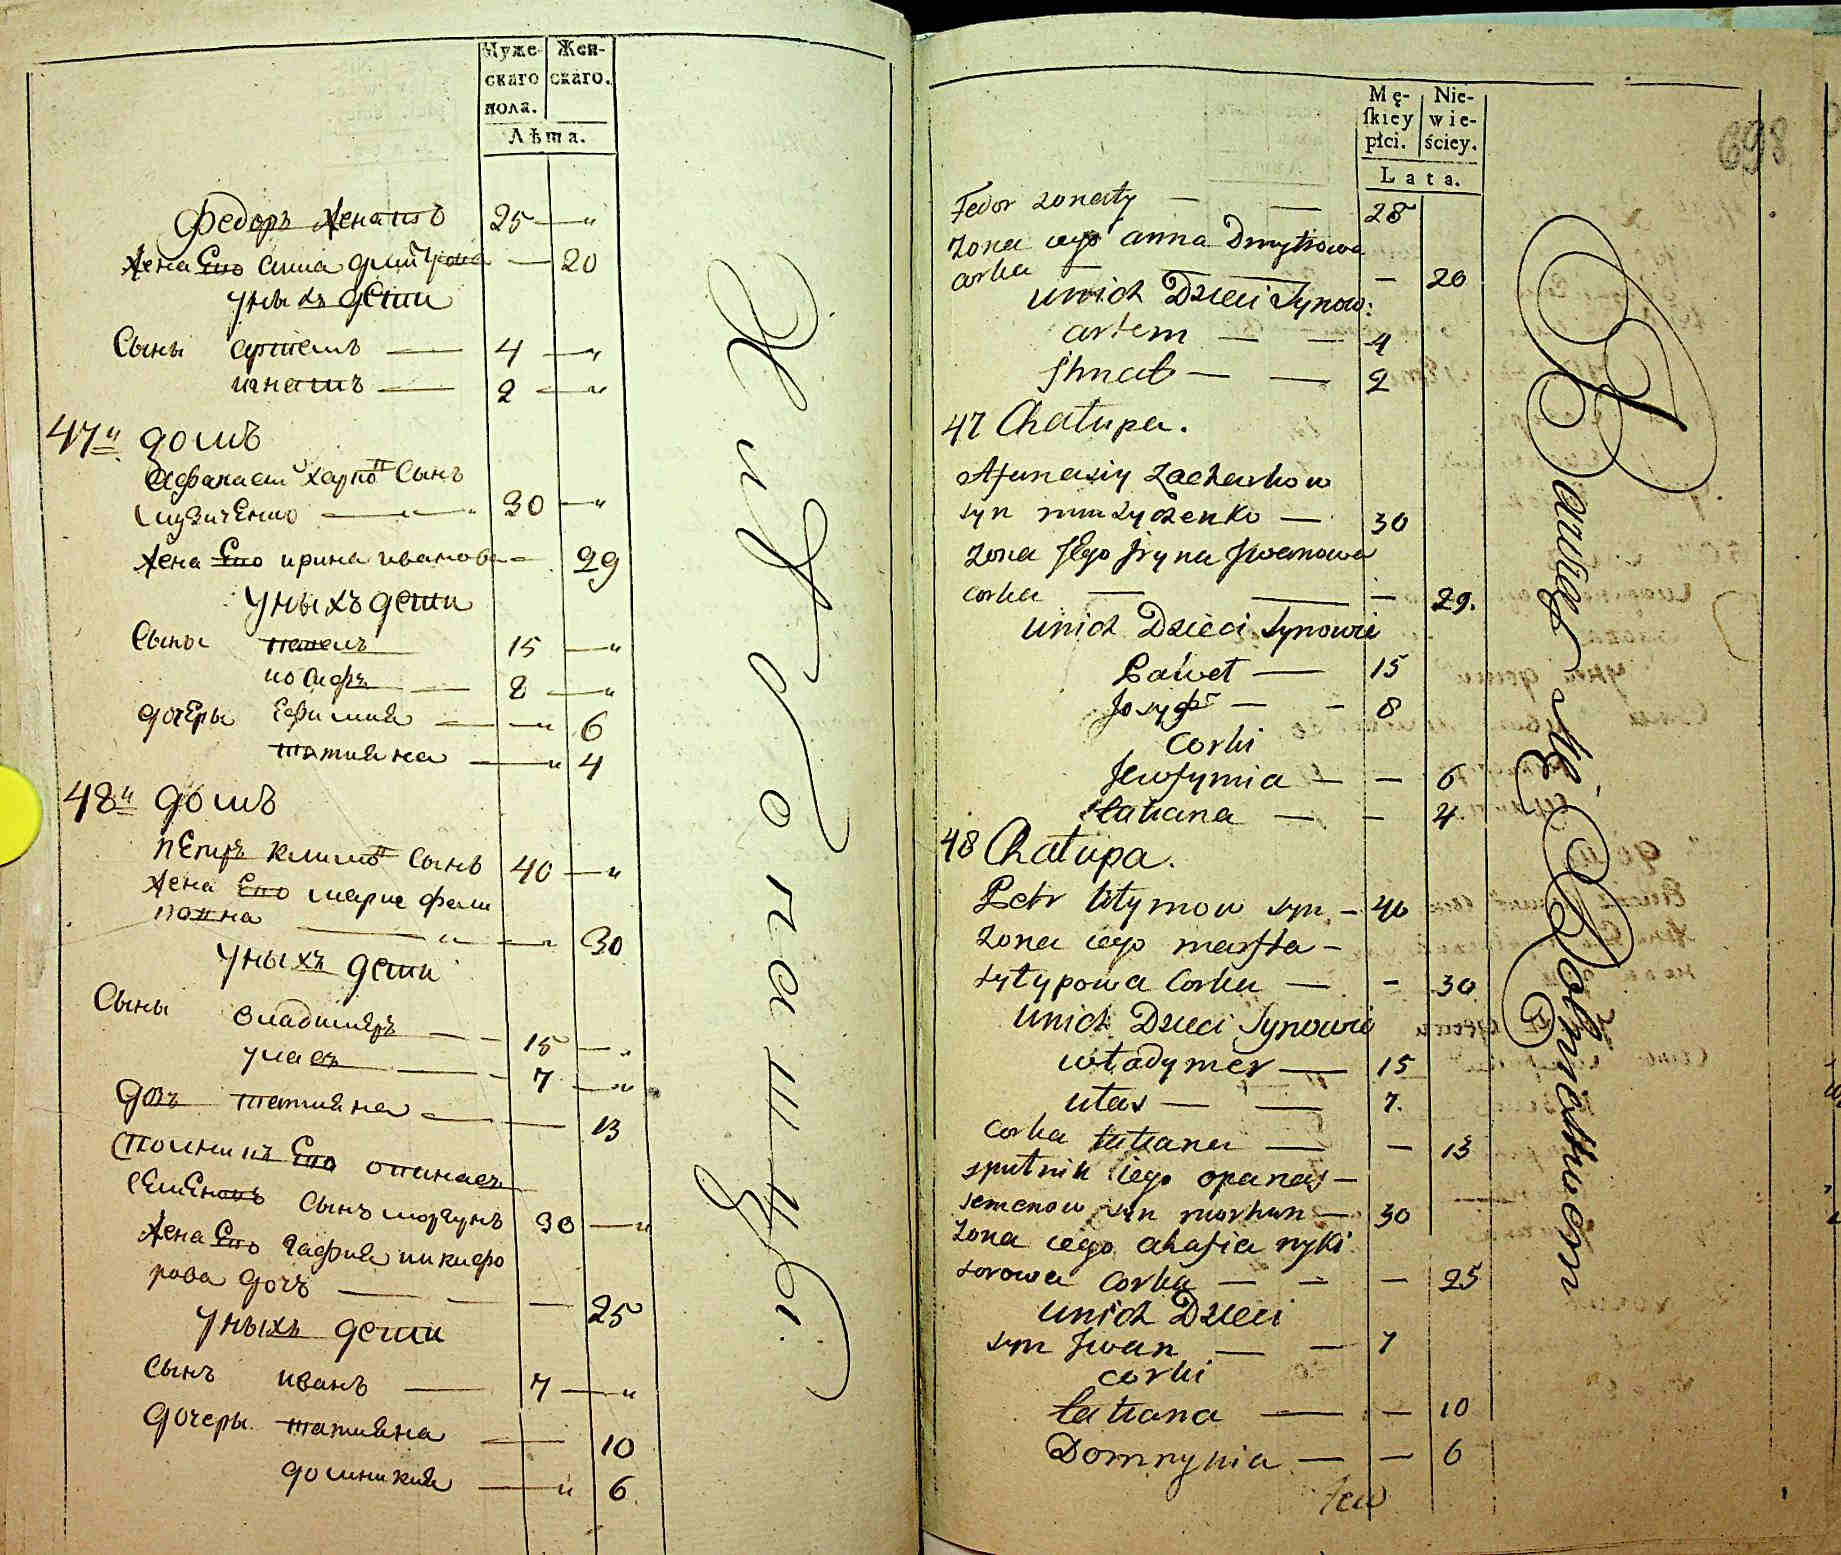 Муже-
скаго
пола.
Жен-
скаго.
Лѣта.
Федоръ женатъ 25 — "
жена Его анна дмитрова — 20
Уныхъ дети
Сыны артемъ — 4 — "
игнатъ — 2 — "
47" домъ
Афанасий харковъ Сынъ
музиченко — " 30 — "
жена Его ирина иванова — 29
Уныхъ дети
Сыны павелъ 15 — "
иосифъ — 8 — "
дочеры Ефимия — " 6
татияна — " 4
48" домъ
пЕтръ климовъ Сынъ 40 — "
жена Его
повна — " — " 30
Уныхъ дети
Сыны владимеръ — — 15 — "
уласъ — — 7 — "
дочь татияна — — 13
Его опанасъ
сЕмЕновъ Сынъ моргунъ 30 — "
жена Его гафия никифо
рова дочъ — — — 25
Уныхъ дети
Сынъ иванъ — 7 — "
дочеры татияна — 10
домникия — " 6
Жидкопащѣ
Mę-
ſkiey
płci.
Nie-
wie-
ściey.
Lata.
698
Fedor zonaty — — 25
zona iego anna Dmytrowa
corka — — — — 20
unich Dzieci Synow:
artem — — 4
Ihnat — — 2
47 Chałupa.
Afanasiy Zacharkow
syn muzyczenko — 30
zona Jego Jryna Jwanowa
corka — — — 29.
unich Dzieci Synowie
Paweł — 15
Josyf — - 8
Corki
Jewfymia — — 6
tatiana — — 4.
48 Chałupa.
Petr klymow syn. — 40
zona iego marfta —
syłypowa Corka — — 30
Unich Dzieci Synowie
władymer — 15
ułas — — 7.
Corka tatiana — — 13
sputnik iego opanas —
semenow syn morhun — 30
zona iego ahafia nyki
forowa corka — — — 25
unich Dzieci
syn Jwan — — 7
corki
tatiana — — 10
Domnykia — — 6